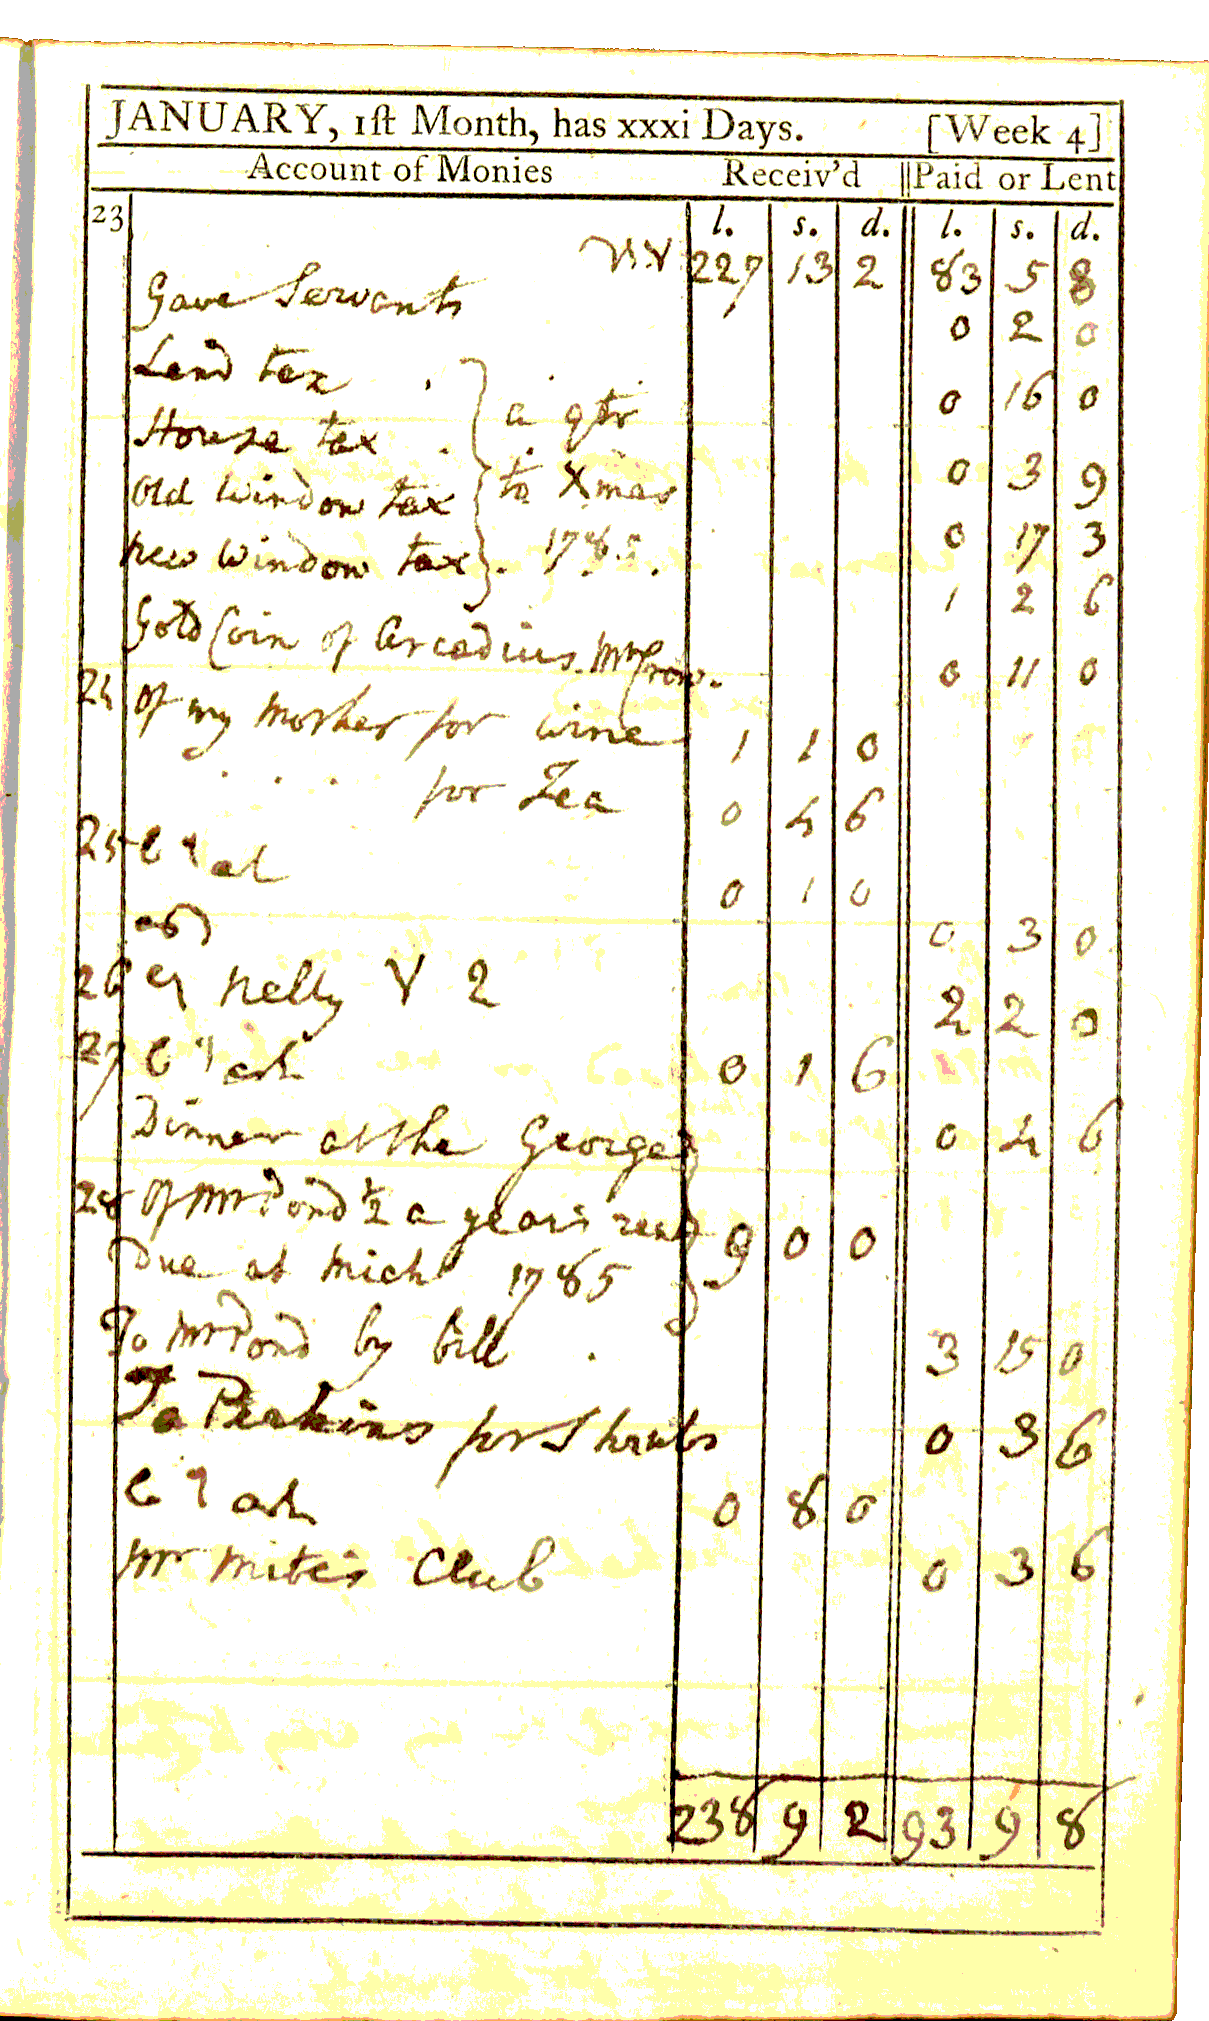 JANUARY, 1ſt Month, has xxxi Days. [Week 4]
Account of Monies Receiv'd Paid or Lent
23 l. s. d. l. s. d.
227 13 2 83 5 8
Gave Servants 0 2 0
Land tax . a qtr 0 16 0
House tax . 0 3 9
Old Window tax to Xmas 0 17 3
New Window tax . 1785. 1 2 6
Gold Coin of Arcadius. Mr Crow. 0 11 0
24 Of my Mother for Wine 1 1 0
. . . for Tea 0 4 6
25 0 1 0
0 3 0
26 Nelly V 2 2 2 0
27 0 1 6
Dinner at the George 0 4 6
28 Of Mr Pond ½ a years rent 9 0 0
Due at Mich 1785
To Mr Pond by bill . 3 15 0
To Perkins for Shrubs 0 3 6
0 8 0
Mr Mites Club 0 3 6
238 9 2 93 9 8